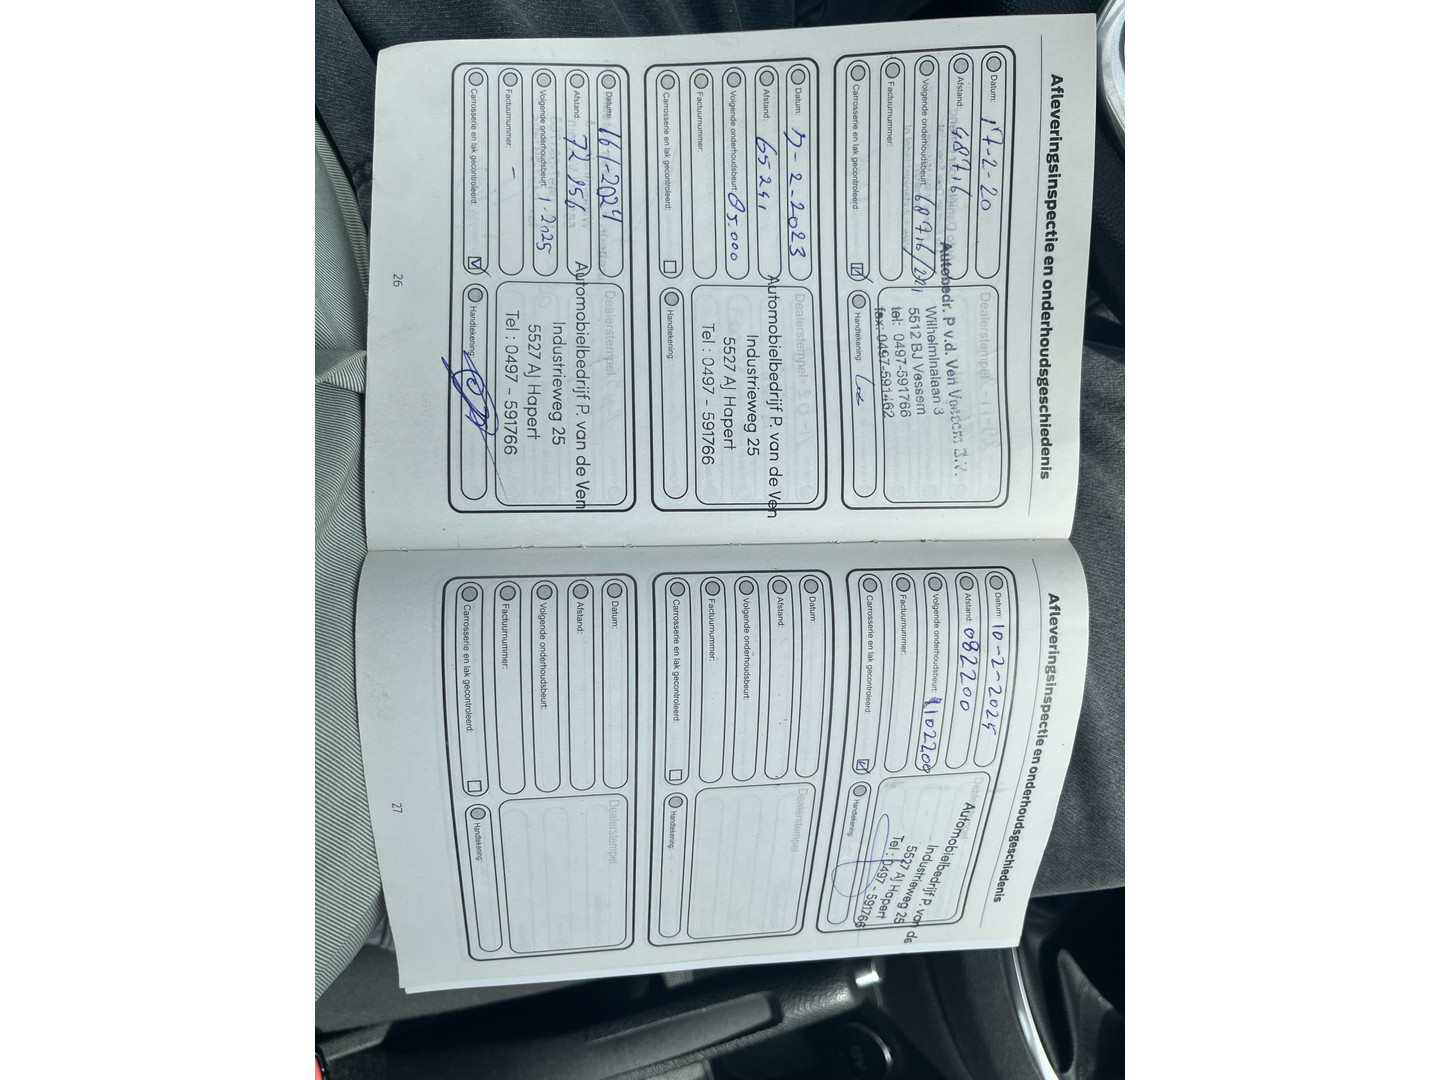 Afleveringsinspectie en onderhoudsgeschiedenis
Datum: 17-2-20
Afstand: 48716
Volgende onderhoudsbeurt: 68716/2021
Factuurnummer:
Carrosserie en lak gecontroleerd:
Dealerstempel
Autobedr. P v.d. Ven Vessem B.V.
Wilhelminalaan 3
5512 BJ Vessem
tel: 0497-591766
fax: 0497-591462
Handtekening:
Datum: 3-2-2023
Afstand: 65241
Volgende onderhoudsbeurt: 85.000
Factuurnummer:
Carrosserie en lak gecontroleerd:
Dealerstempel
Automobielbedrijf P. van de Ven
Industrieweg 25
5527 AJ Hapert
Tel : 0497 - 591766
Handtekening:
Datum: 16/1-2024
Afstand: 72956
Volgende onderhoudsbeurt: 1-2025
Factuurnummer: -
Carrosserie en lak gecontroleerd:
Dealerstempel
Automobielbedrijf P. van de Ven
Industrieweg 25
5527 AJ Hapert
Tel : 0497 - 591766
Handtekening:
26
Afleveringsinspectie en onderhoudsgeschiedenis
Datum: 10-2-2025
Afstand: 082200
Volgende onderhoudsbeurt: 102200
Factuurnummer:
Carrosserie en lak gecontroleerd:
Automobielbedrijf P. van de
Industrieweg 25
5527 AJ Hapert
Tel : 0497 - 591766
Handtekening:
Datum:
Afstand:
Volgende onderhoudsbeurt:
Factuurnummer:
Carrosserie en lak gecontroleerd:
Dealerstempel
Handtekening:
Datum:
Afstand:
Volgende onderhoudsbeurt:
Factuurnummer:
Carrosserie en lak gecontroleerd:
Dealerstempel
Handtekening:
27